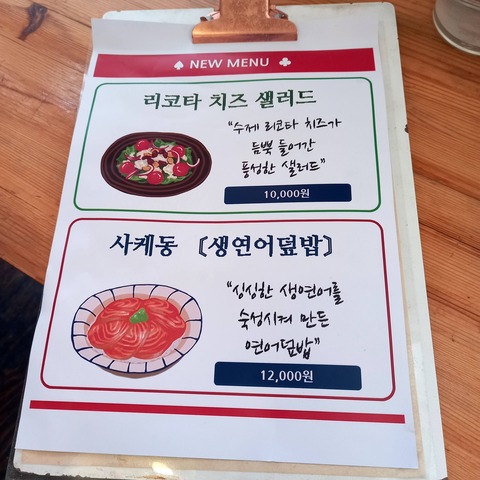 ♠ NEW MENU ♣
리코타 치즈 샐러드
"수제 리코타 치즈가
듬뿍 들어간
풍성한 샐러드"
10,000원
사케동 〔생연어덮밥〕
"싱싱한 생연어를
숙성시켜 만든
연어덮밥"
12,000원